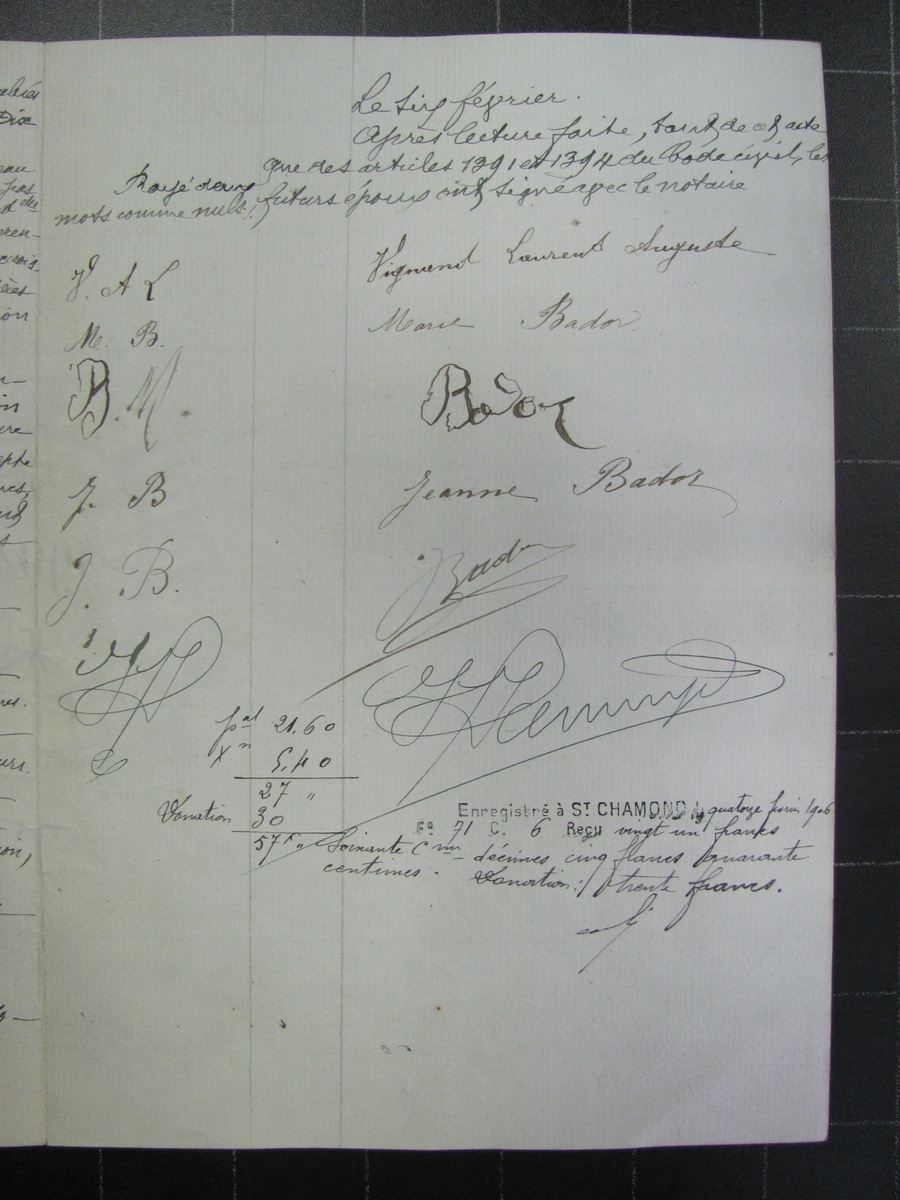 Le six février.
Après lecture faite, tant de cet acte
que des articles 1391 et 1394 du Code civil, les
futurs époux ont signé avec le notaire
Rayé deux
mots comme nuls.
V. A L
Vignand Laurent Auguste
M. B.
Marie Bador
B. M
Bador
J. B
Jeanne Bador
J. B.
J Bador
pal 21.60
Xm 5,40
27 "
Donation 30
57f "
Enregistré à ST CHAMOND le quatorze février 1906
Fo 71 C. 6 Reçu vingt un francs
Soixante Cmes décimes cinq francs quarante
centimes. Donation: trente francs.